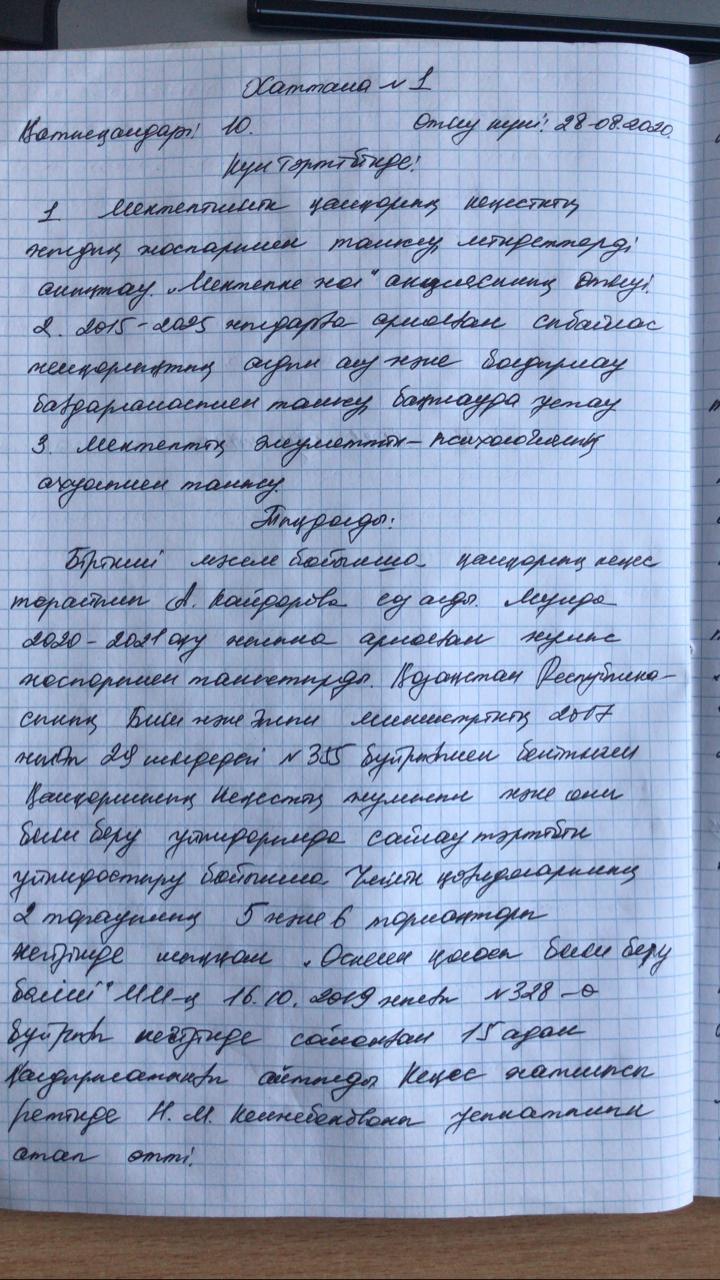 Хаттама №1
Қатысқандар: 10. Өткізу күні: 28.08.2020.
Күн тәртібінде:
1 Мектептің қамқорлық кеңестің
жылдық жоспарымен танысу, міндеттерді
анықтау. „Мектепке жол" акциясының өткізуі.
2. 2015-2025 жылдарға арналған сыбайлас
жемқорлықтың алдын алу және болдырмау
бағдарламасымен танысу, бақылауда ұстау
3. Мектептің әлеуметтік-психологиялық
ахуалымен танысу.
Тыңдалды:
Бірінші мәселе бойынша қамқорлық кеңес
төрайымы А. Кайдарова сөз алды. Мұнда
2020-2021 оқу жылына арналған жұмыс
жоспарымен таныстырды. Қазақстан Республика-
сының Білім және Ғылым министрлігінің 2017
жылғы 29 шілдедегі №355 бұйрығымен бекітілген
Қамқоршылық Кеңестің жұмысын және оны
білім беру ұйымдарында сайлау тәртібін
ұйымдастыру бойынша Үлгілік қағидаларының
2 тарауының 5 және 6 тармақтары
негізінде шыққан „Өскемен қаласы білім беру
бөлімі" ММ-ң 16.10.2019 жылғы №328-ө
бұйрығы негізінде сайланған 15 адам
қалдырылатынын айтылды Кеңес хатшысы
ретінде Н. М. ұсынатынын
атап өтті.